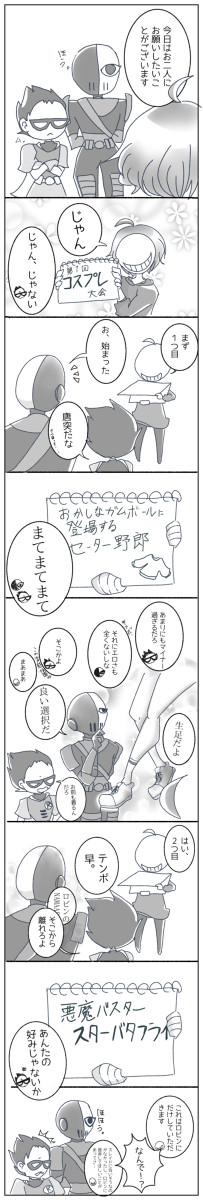 今日はお二人に
お願いしたいこ
とがございます
じゃん
第1回
コスプレ
大会
じゃん、じゃない
まず
1つ目
お、始まった
唐突だな
おかしなガムボールに
登場する
セーター野郎
まてまてまて
あまりにもマイナー
過ぎるだろ
それにエロさも
全くないしな
そこかよ
まあまあ
生足だよ
良い選択だ
お前も着るん
だろ
はい、
2つ目
テンポ
早。
ロビンの
そこから
離れろよ
悪魔バスター
スターバタフライ
あんたの
好みじゃないか
これはロビンに
だけしていただ
きます
なんで!?
ほほう